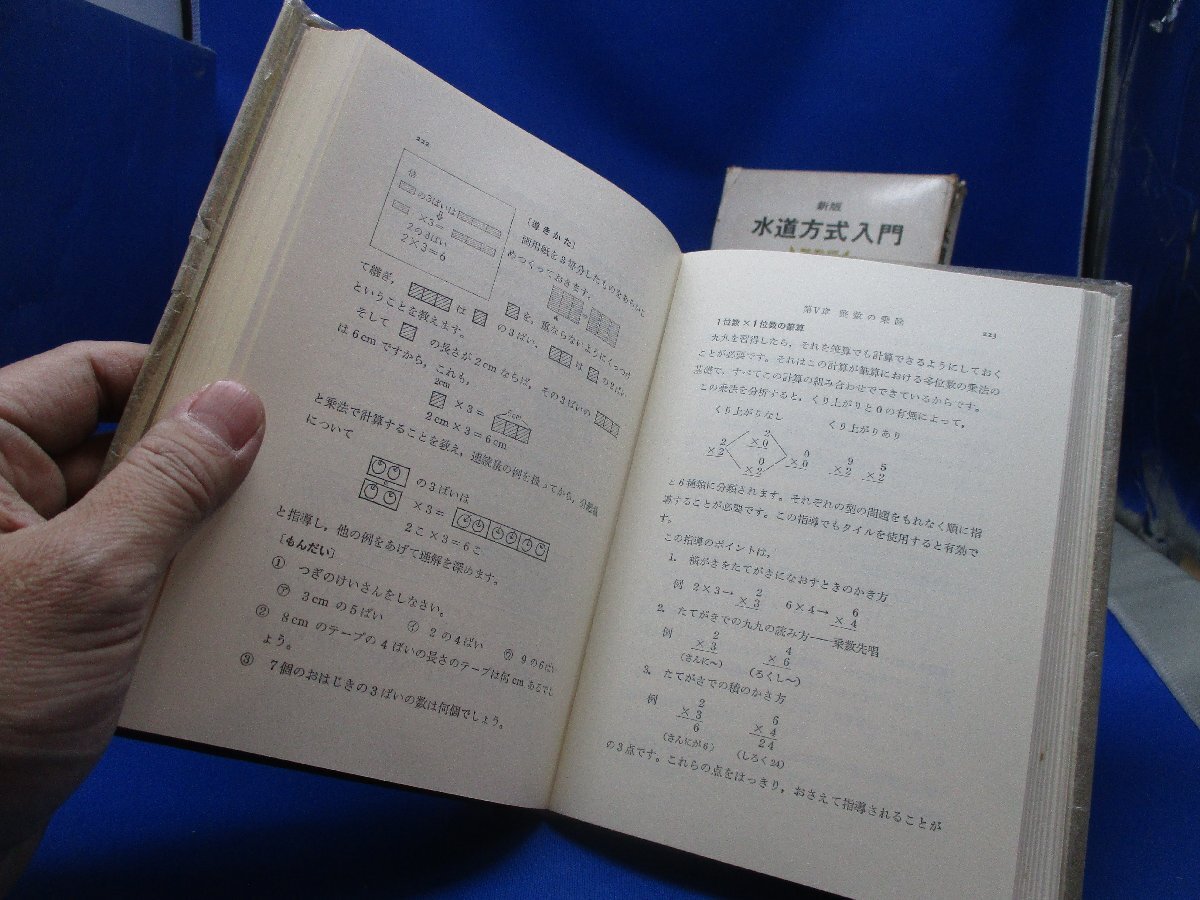 新版
水道方式入門
222
倍
の3ばいは
×3=
2の3ばい
2×3=6
[導きかた]
画用紙を3等分したものをあらかじ
めつくっておきます。
を、重ならないようにくっつけ
て継ぎ, は の3ばい, は の3ばい,
ということを教えます。
そして の長さが2cmならば, その3ばいの
は6cmですから, これも,
2cm
×3=
2cm×3=6cm
と乗法で計算することを教え, 連続量の例を扱ってから, 分離量
について
の3ばいは
×3=
2こ×3=6こ
と指導し, 他の例をあげて理解を深めます。
[もんだい]
① つぎのけいさんをしなさい。
㋐ 3cmの5ばい ㋑ 2の4ばい ㋒ 9の6ばい
② 8cmのテープの4ばいの長さのテープは何cmあるでし
ょう。
③ 7個のおはじきの3ばいの数は何個でしょう。
第Ⅴ章 整数の乗除
223
1位数×1位数の筆算
九九を習得したら, それを筆算でも計算できるようにしておく
ことが必要です。それはこの計算が筆算における多位数の乗法の
基礎で, すべてこの計算の組み合わせでできているからです。
この乗法を分析すると, くり上がりと0の有無によって,
くり上がりなし くり上がりあり
2 2 0 0 9 5
×2 ×0 ×2 ×0 ×2 ×2
と6種類に分類されます。それぞれの型の問題をもれなく順に指
導することが必要です。この指導でもタイルを使用すると有効で
す。
この指導のポイントは,
1. 横がきをたてがきになおすときのかき方
例 2×3→ 2 6×4→ 6
×3 ×4
2. たてがきでの九九の読み方——乗数先唱
例 2 4
×3 ×6
(さんに〜) (ろくし〜)
3. たてがきでの積のかき方
例 2 6
×3 ×4
6 24
(さんにが6) (しろく24)
の3点です。これらの点をはっきり, おさえて指導されることが